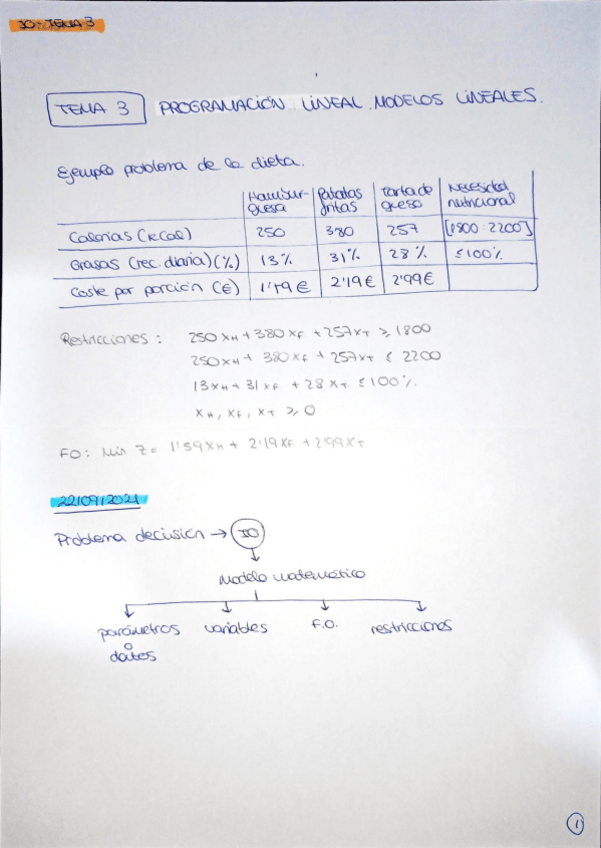 IO - TEMA 3
TEMA 3 PROGRAMACIÓN LINEAL. MODELOS LINEALES.
Ejemplo problema de la dieta.
Hambur- Patatas Tarta de Necesidad
guesa fritas queso nutricional
Calorías (kcal) 250 380 257 [1800-2200]
Grasas (rec. diaria) (%) 13% 31% 28% ≤100%
Coste por porción (€) 1'59€ 2'19€ 2'99€
Restricciones: 250xH + 380xF + 257xT ≥ 1800
250xH + 380xF + 257xT ≤ 2200
13xH + 31xF + 28xT ≤ 100%
xH, xF, xT ≥ 0
FO: Min Z = 1'59xH + 2'19xF + 2'99xT
22/09/2021
Problema decisión → IO
Modelo matemático
parámetros variables F.O. restricciones
o
datos
1